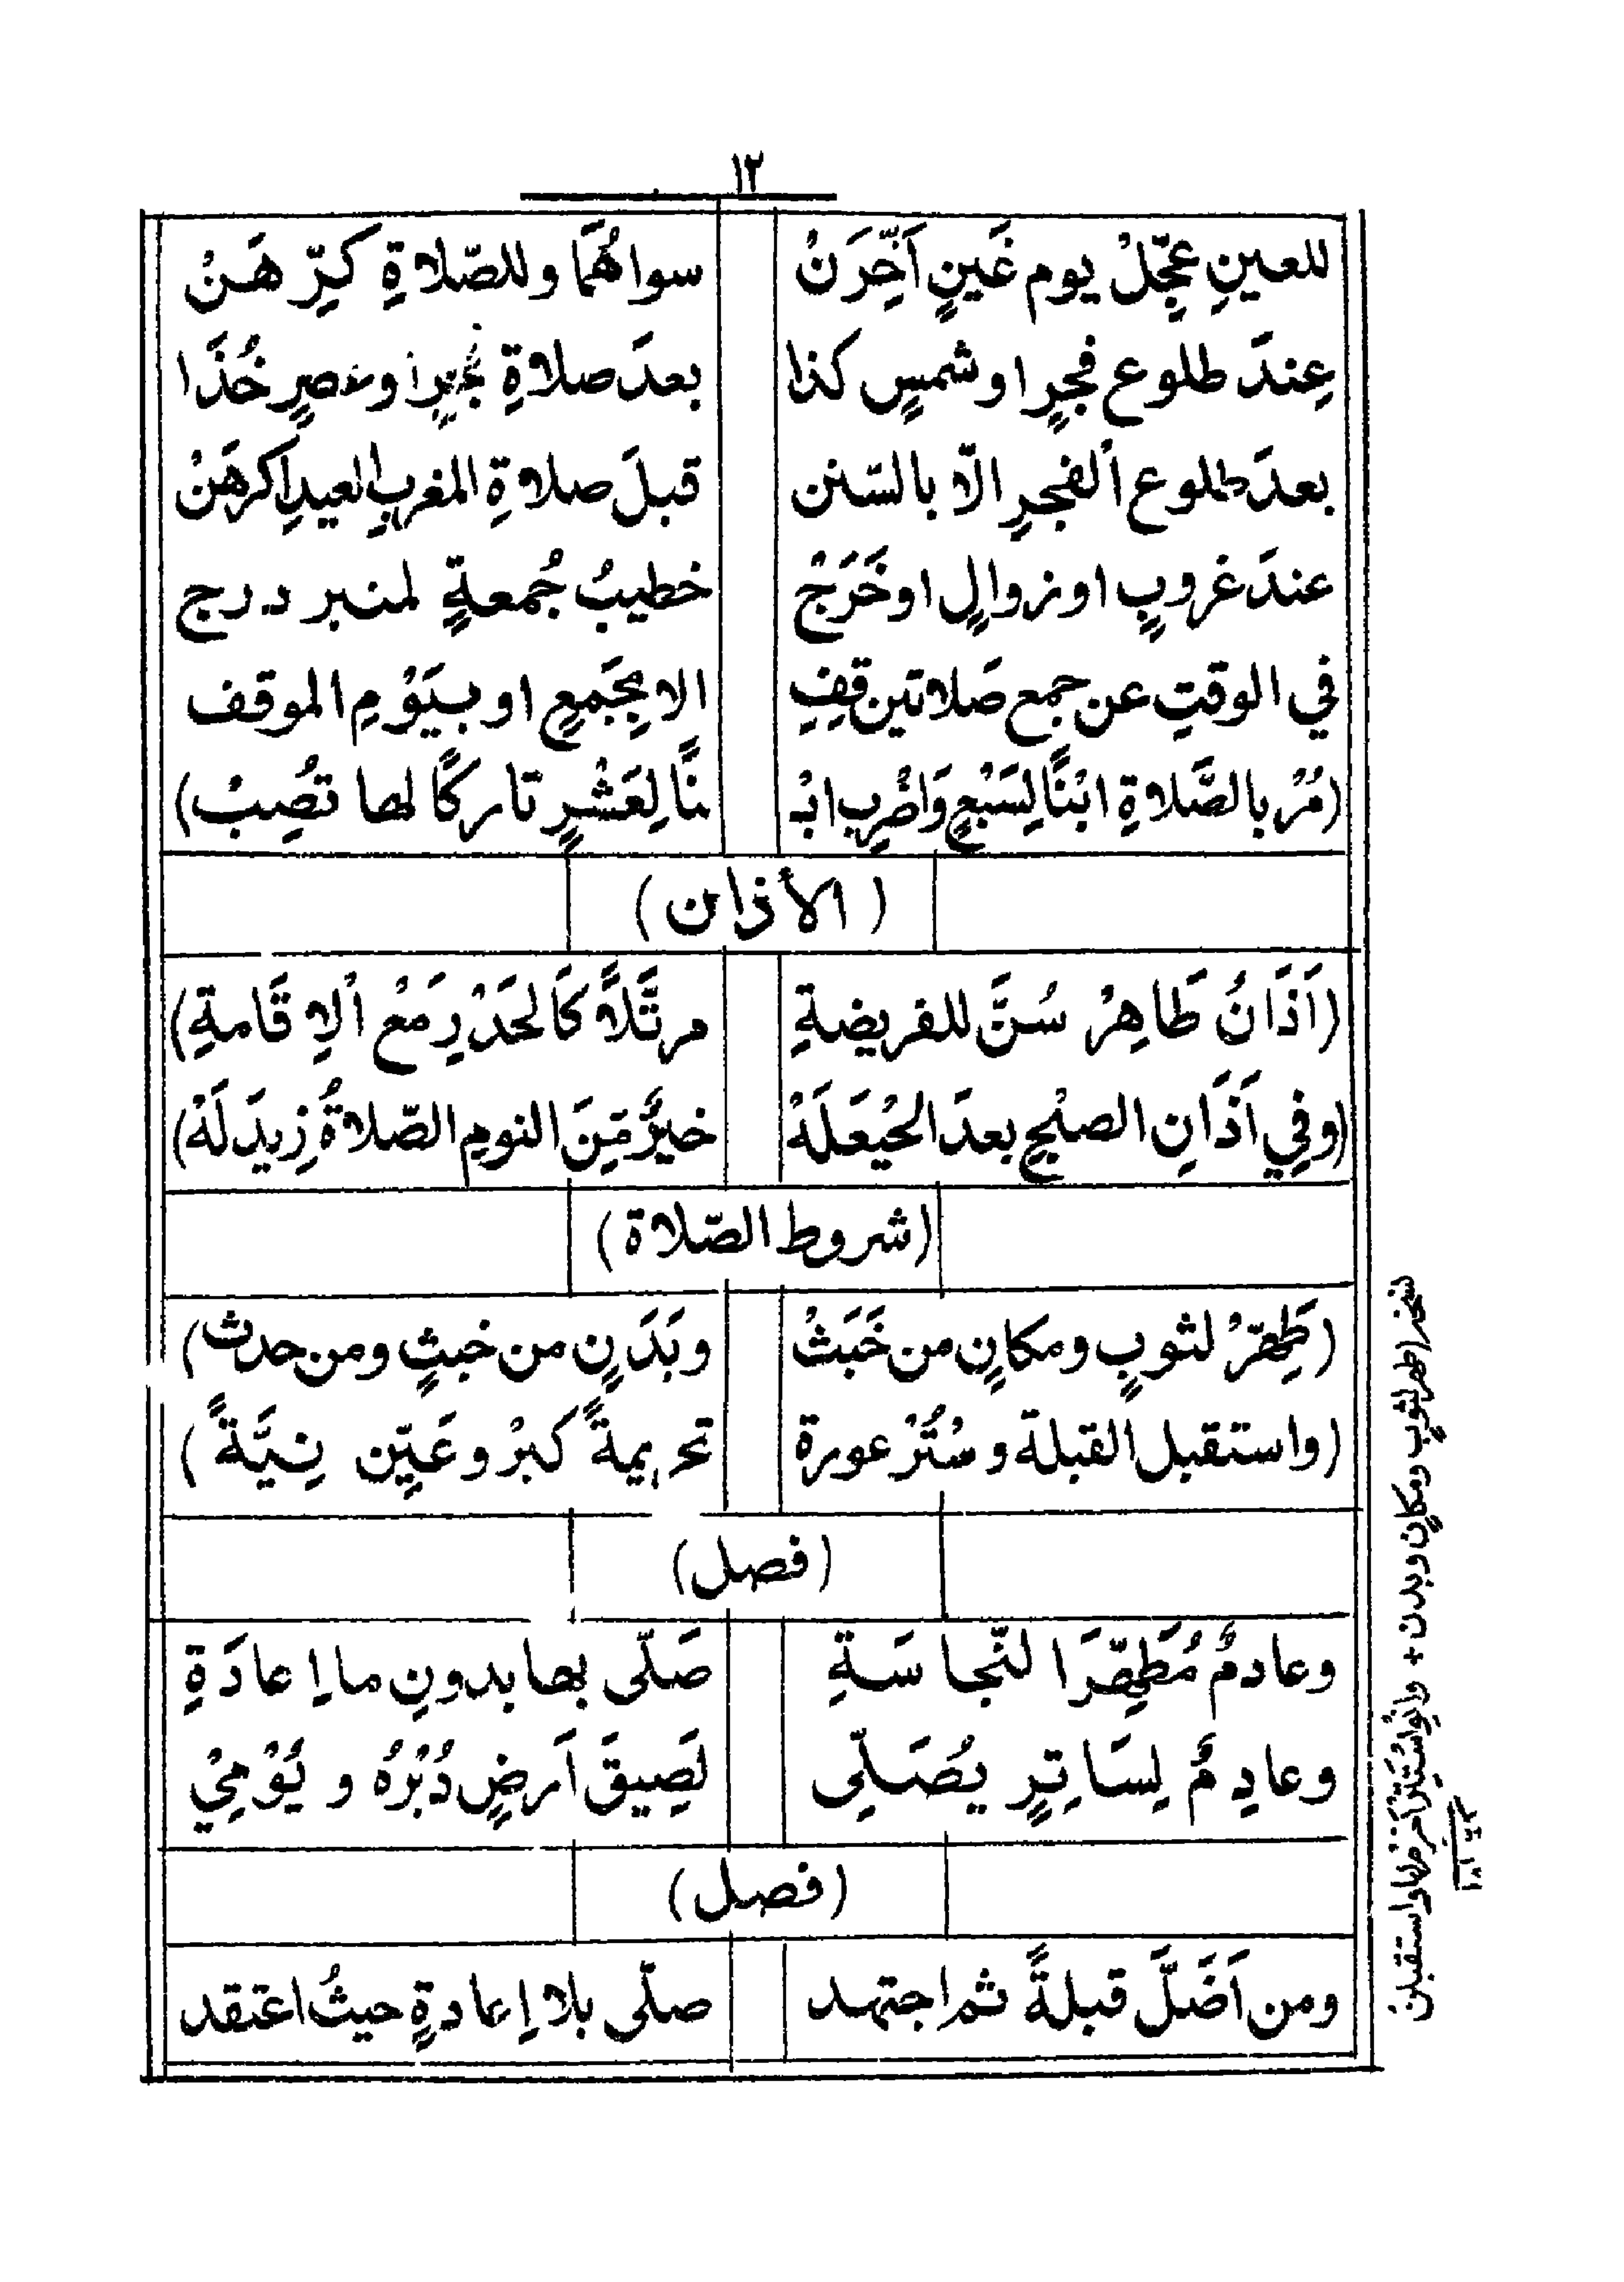 ١٢
للعينِ عجِّلْ يوم غَينٍ اَخِّرَنْ سواهُمَا وللصّلاةِ كَرِّهَنْ
عِندَ طلوع فجرٍ او شمسٍ كذا بعدَ صلاةِ فجرٍ او عصرٍ خُذَا
بعدَ طلوع ألفجرِ الّا بالسّنن قبلَ صلاةِ المغربِ العيدِ اكرهَنْ
عندَ غروبٍ او زوالٍ او خَرَجْ خطيبُ جُمعةٍ لمنبر درج
في الوقتِ عن جمع صَلاتين قِفِ الا بِجَمعٍ او بيَوْمِ الموقف
(مُرْ بالصَّلاةِ ابْنًا لِسَبْعٍ وَاضْرِبِ ابْـ ـنًا لِعَشْرٍ تاركًا لها تصُِبْ)
(الأذان)
(اَذَانُ طَاهِرْ سُنَّ للفريضةِ مرتَّلاً كَالحَدْرِ مَعْ اْلاِقَامةِ)
(وفِي اَذَانِ الصبْحِ بعدَ الحَيْعَلَهْ خيرٌ مِّنَ النومِ الصّلاةُ زِيدَ لَهْ)
(شروط الصّلاة)
(طَهِّرْ لثوبٍ ومكانٍ من خَبَثْ وبَدَنٍ من خبثٍ ومن حدث)
(واستقبل القبلة وسْتُرْ عورة تحريمةً كبرْ وعَيِّن نِيَّةً)
(فصل)
وعادمٌ مُطَهِّرَا لنّجاسَةِ صَلّى بها بدونِ ما اِعادَةِ
وعادِمٌ لِسَاتِرٍ يُصَلِّى لَصِيقَ اَرضٍ دُبْرُه و يُوْمِيْ
(فصل)
ومن اَضَلَّ قبلةً ثم اجتهد صلّى بلا اِعادةٍ حيثُ اعتقد
نسخة اطهر لثوبٍ ومكانٍ وبدن + وانْوِ